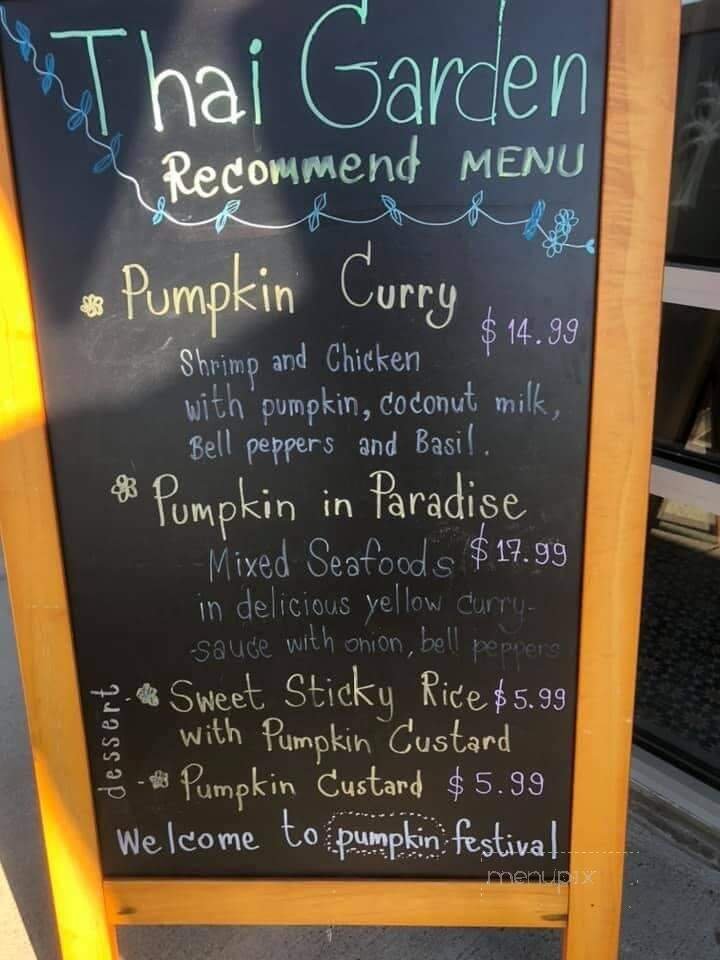 Thai Garden
Recommend MENU
Pumpkin Curry
$14.99
Shrimp and Chicken
with pumpkin, coconut milk,
Bell peppers and Basil.
Pumpkin in Paradise
Mixed Seafoods $17.99
in delicious yellow curry-
-sauce with onion, bell peppers
dessert
- Sweet Sticky Rice $5.99
with Pumpkin Custard
- Pumpkin Custard $5.99
Welcome to pumpkin festival
menupix